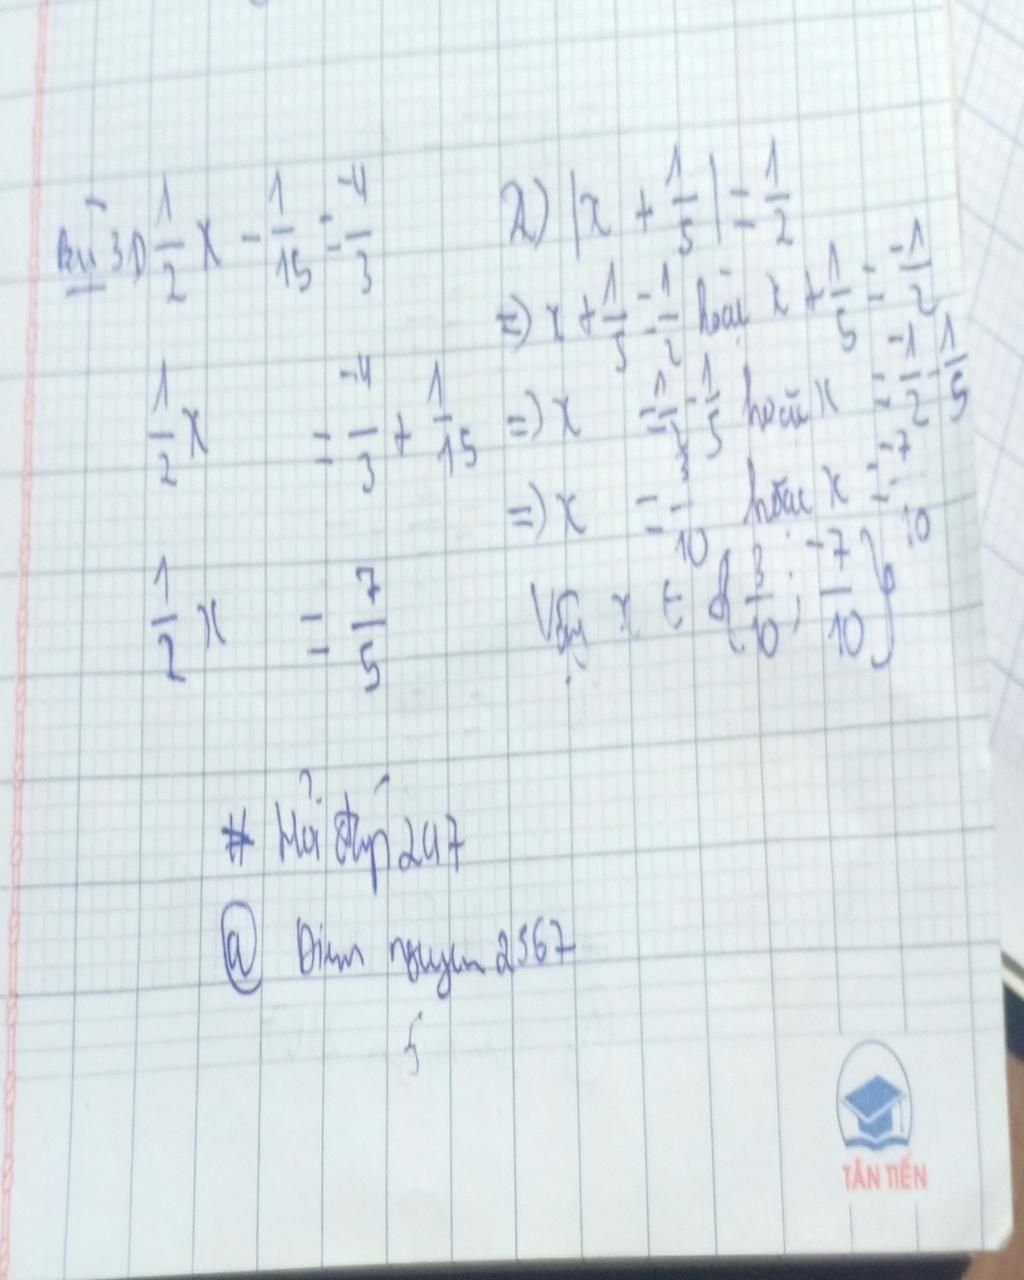 Bài 3 1) 1/2 x - 1/15 = -4/3
1/2 x = -4/3 + 1/15
1/2 x = 7/5
2) |x + 1/5| = 1/2
=> x + 1/5 = 1/2 hoặc x + 1/5 = -1/2
=> x = 1/2 - 1/5 hoặc x = -1/2 - 1/5
=> x = 3/10 hoặc x = -7/10
Vậy x ∈ {3/10; -7/10}
# Hỏi đáp 247
@ Diem nguyen 2567
TÂN TIẾN